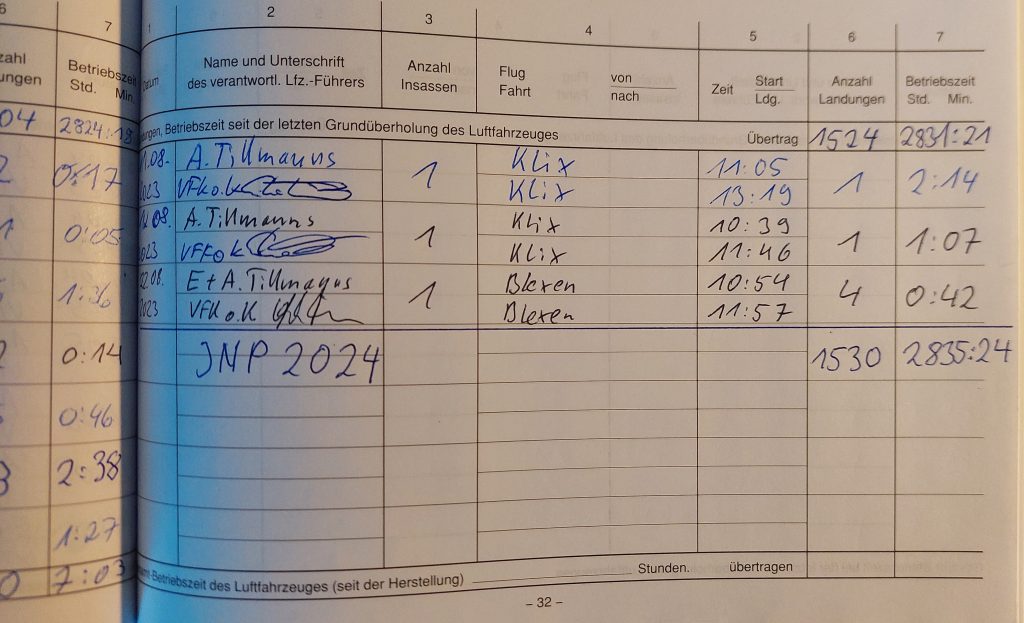 6
7
zahl
ungen
Betriebszeit
Std. Min.
04 2824:18
2 0:17
1 0:05
1:36
2 0:14
0:46
3 2:38
1:27
0 7:03
1 2 3 4 5 6 7
Datum
Name und Unterschrift
des verantwortl. Lfz.-Führers
Anzahl
Insassen
Flug
Fahrt
von
nach
Zeit
Start
Ldg.
Anzahl
Landungen
Betriebszeit
Std. Min.
Betriebszeit seit der letzten Grundüberholung des Luftfahrzeuges Übertrag 1524 2831:21
.08. A. Tillmanns 1 Klix 11:05 1 2:14
2023 VFK o.k. Klix 13:19
08. A. Tillmanns 1 Klix 10:39 1 1:07
2023 Klix 11:46
22.08. E + A. Tillmanns 1 10:54 4 0:42
2023 VFK o.K 11:57
JNP 2024 1530 2835:24
Betriebszeit des Luftfahrzeuges (seit der Herstellung) Stunden. übertragen
– 32 –